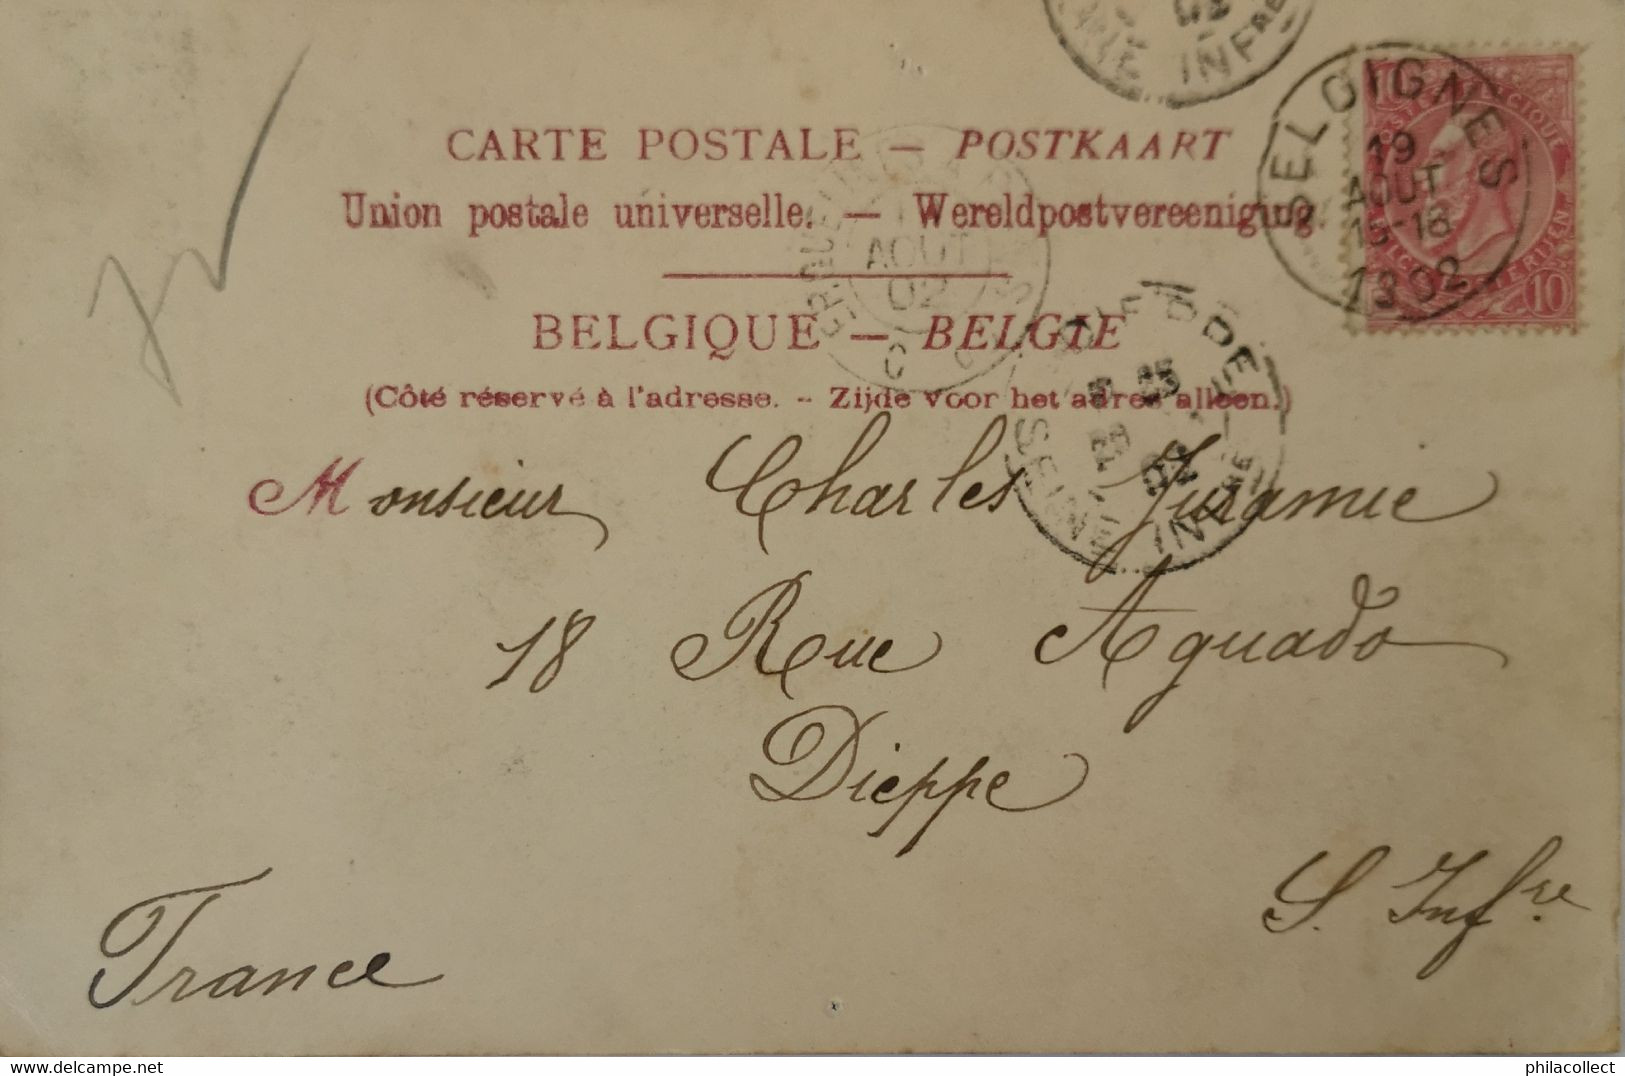 INFRE
CARTE POSTALE — POSTKAART
Union postale universelle. — Wereldpostvereeniging.
BELGIQUE — BELGIE
(Côté réservé à l'adresse. - Zijde voor het adres alleen.)
SELOIGNES
19
AOUT
15-18
1902
10
AOUT
02
SEINE INFRE
Monsieur Charles
18 Rue Aguado
Dieppe
S. Infre
France
delcampe.net
philacollect